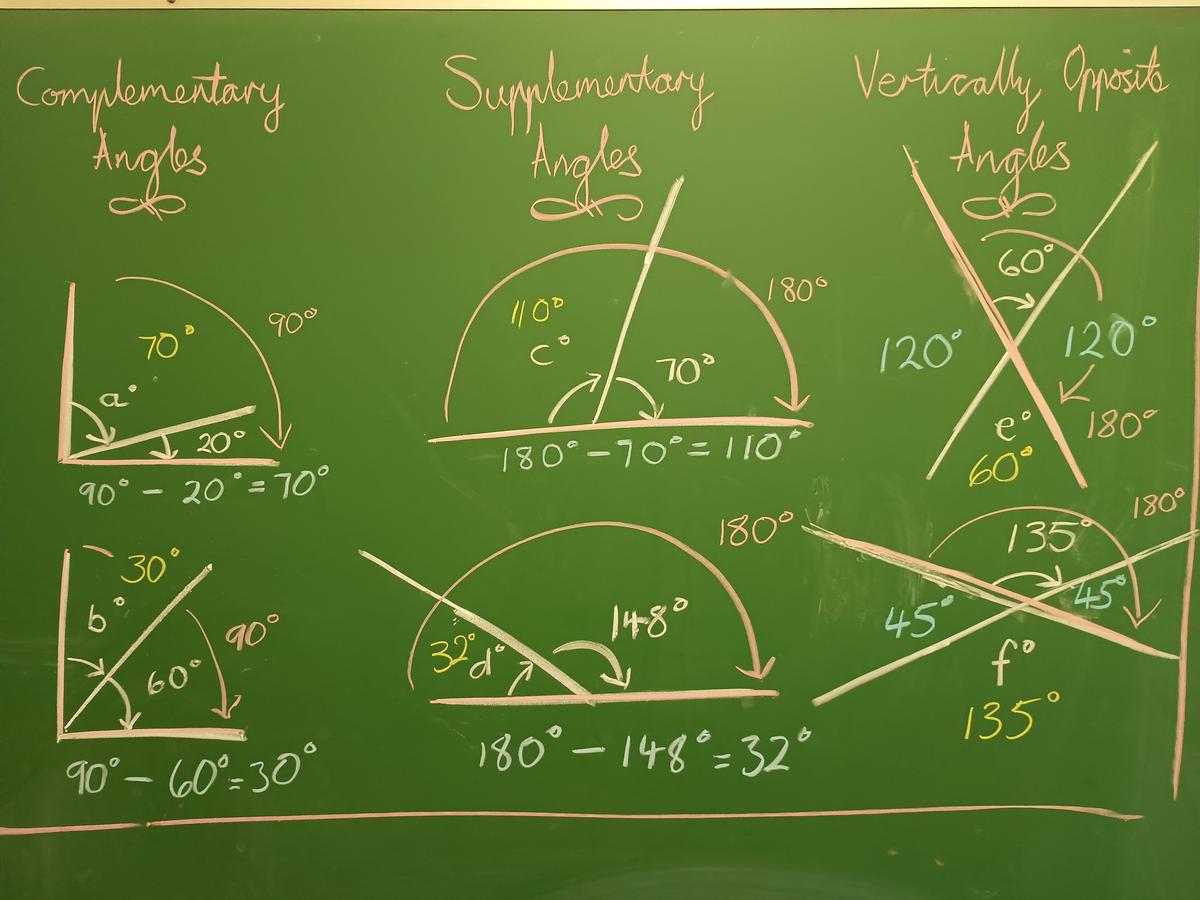 Complementary
Angles
90°
70°
a°
20°
90° - 20° = 70°
30°
b°
90°
60°
90° - 60° = 30°
Supplementary
Angles
180°
110°
c°
70°
180° - 70° = 110°
180°
148°
32°
d°
180° - 148° = 32°
Vertically Opposite
Angles
60°
120°
120°
e°
180°
60°
180°
135°
45°
45°
f°
135°